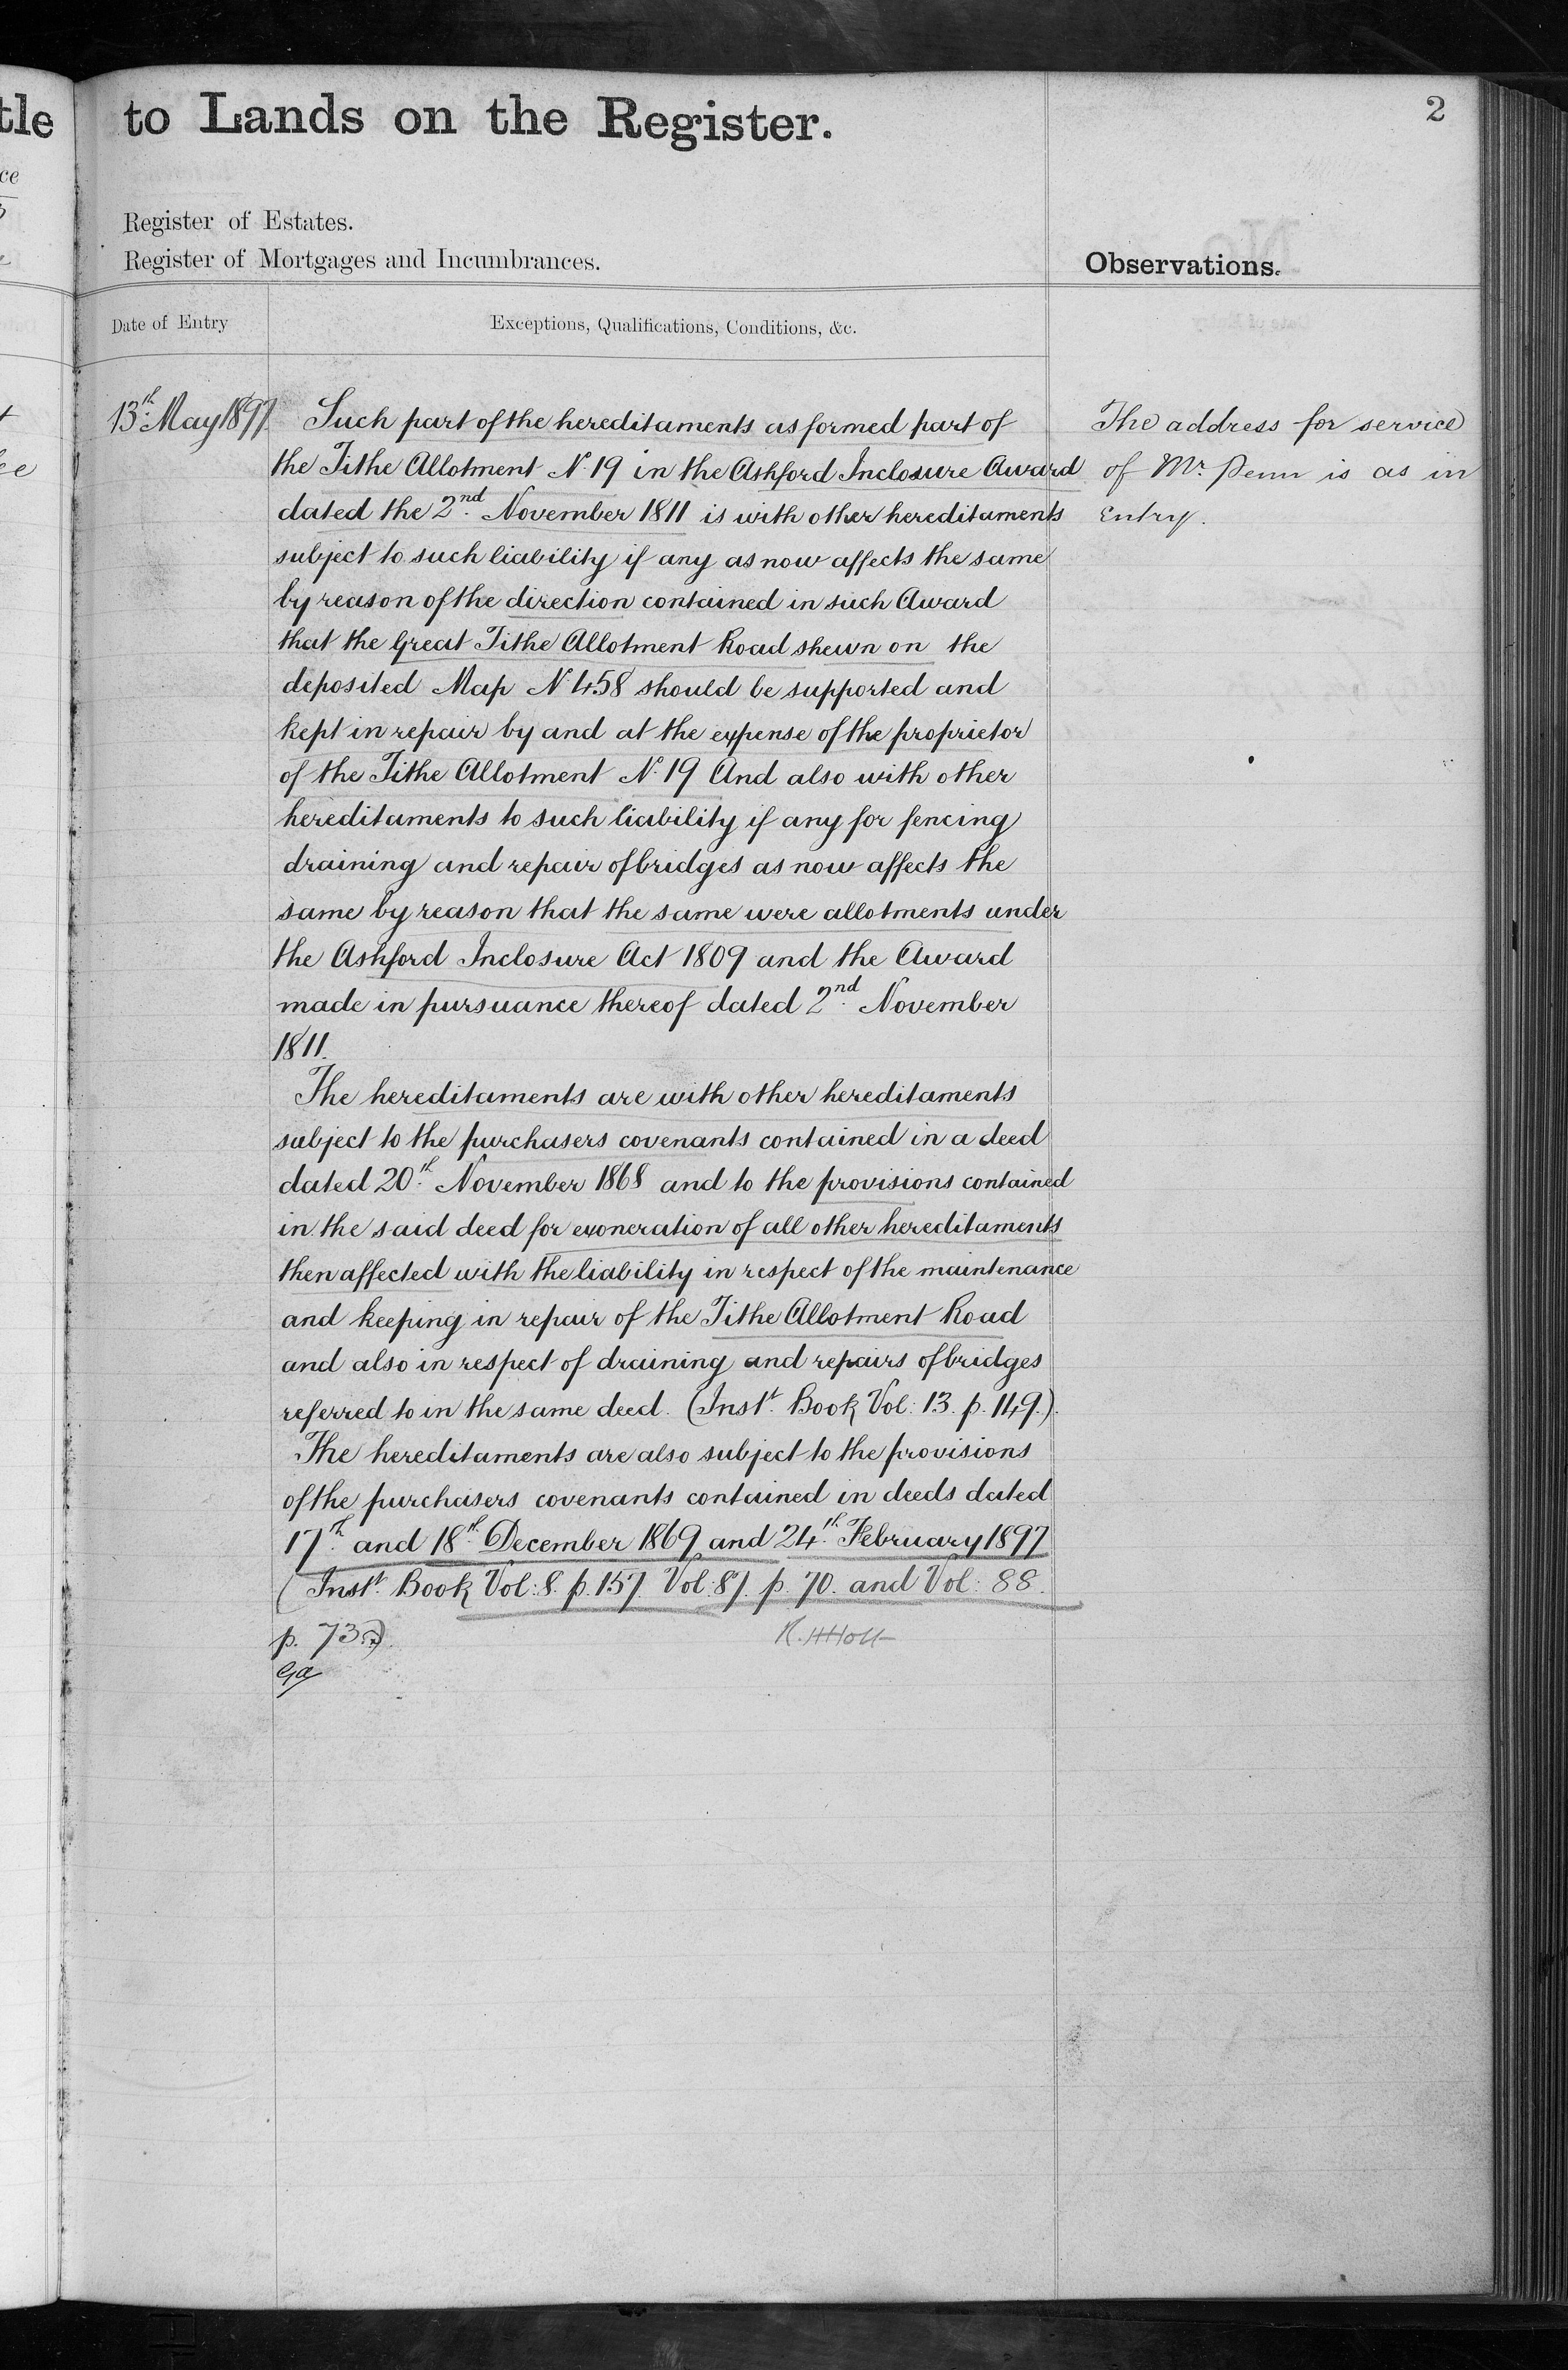 tle to Lands on the Register.
2
ce
Register of Estates.
Register of Mortgages and Incumbrances.
Observations.
Date of Entry
Exceptions, Qualifications, Conditions, &c.
13th May 1897
Such part of the hereditaments as formed part of
the Tithe Allotment No 19 in the Ashford Inclosure Award
dated the 2nd November 1811 is with other hereditaments
subject to such liability if any as now affects the same
by reason of the direction contained in such Award
that the Great Tithe Allotment Road shewn on the
deposited Map No 458 should be supported and
kept in repair by and at the expense of the proprietor
of the Tithe Allotment No 19 And also with other
hereditaments to such liability if any for fencing
draining and repair of bridges as now affects the
same by reason that the same were allotments under
the Ashford Inclosure Act 1809 and the Award
made in pursuance thereof dated 2nd November
1811.
The hereditaments are with other hereditaments
subject to the purchasers covenants contained in a deed
dated 20th November 1868 and to the provisions contained
in the said deed for exoneration of all other hereditaments
then affected with the liability in respect of the maintenance
and keeping in repair of the Tithe Allotment Road
and also in respect of draining and repairs of bridges
referred to in the same deed. (Inst. Book Vol: 13. p. 149.).
The hereditaments are also subject to the provisions
of the purchasers covenants contained in deeds dated
17th and 18th December 1869 and 24th February 1897
(Inst. Book Vol: 8. p. 157. Vol: 87. p. 70. and Vol: 88.
p. 73.)
R. H Holt
The address for service
of Mr. Penn is as in
Entry.